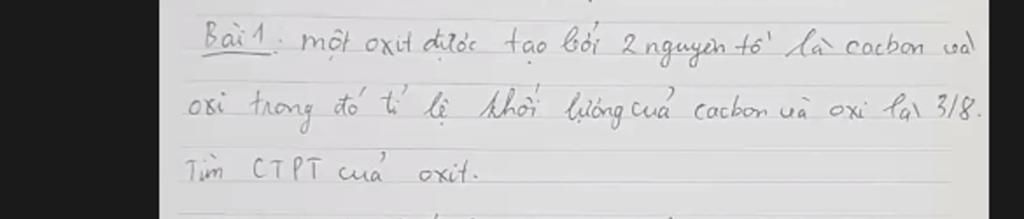 Bài 1. một oxit được tạo bởi 2 nguyên tố là cacbon và
oxi trong đó tỉ lệ khối lượng của cacbon và oxi là 3/8.
Tìm CTPT của oxit.